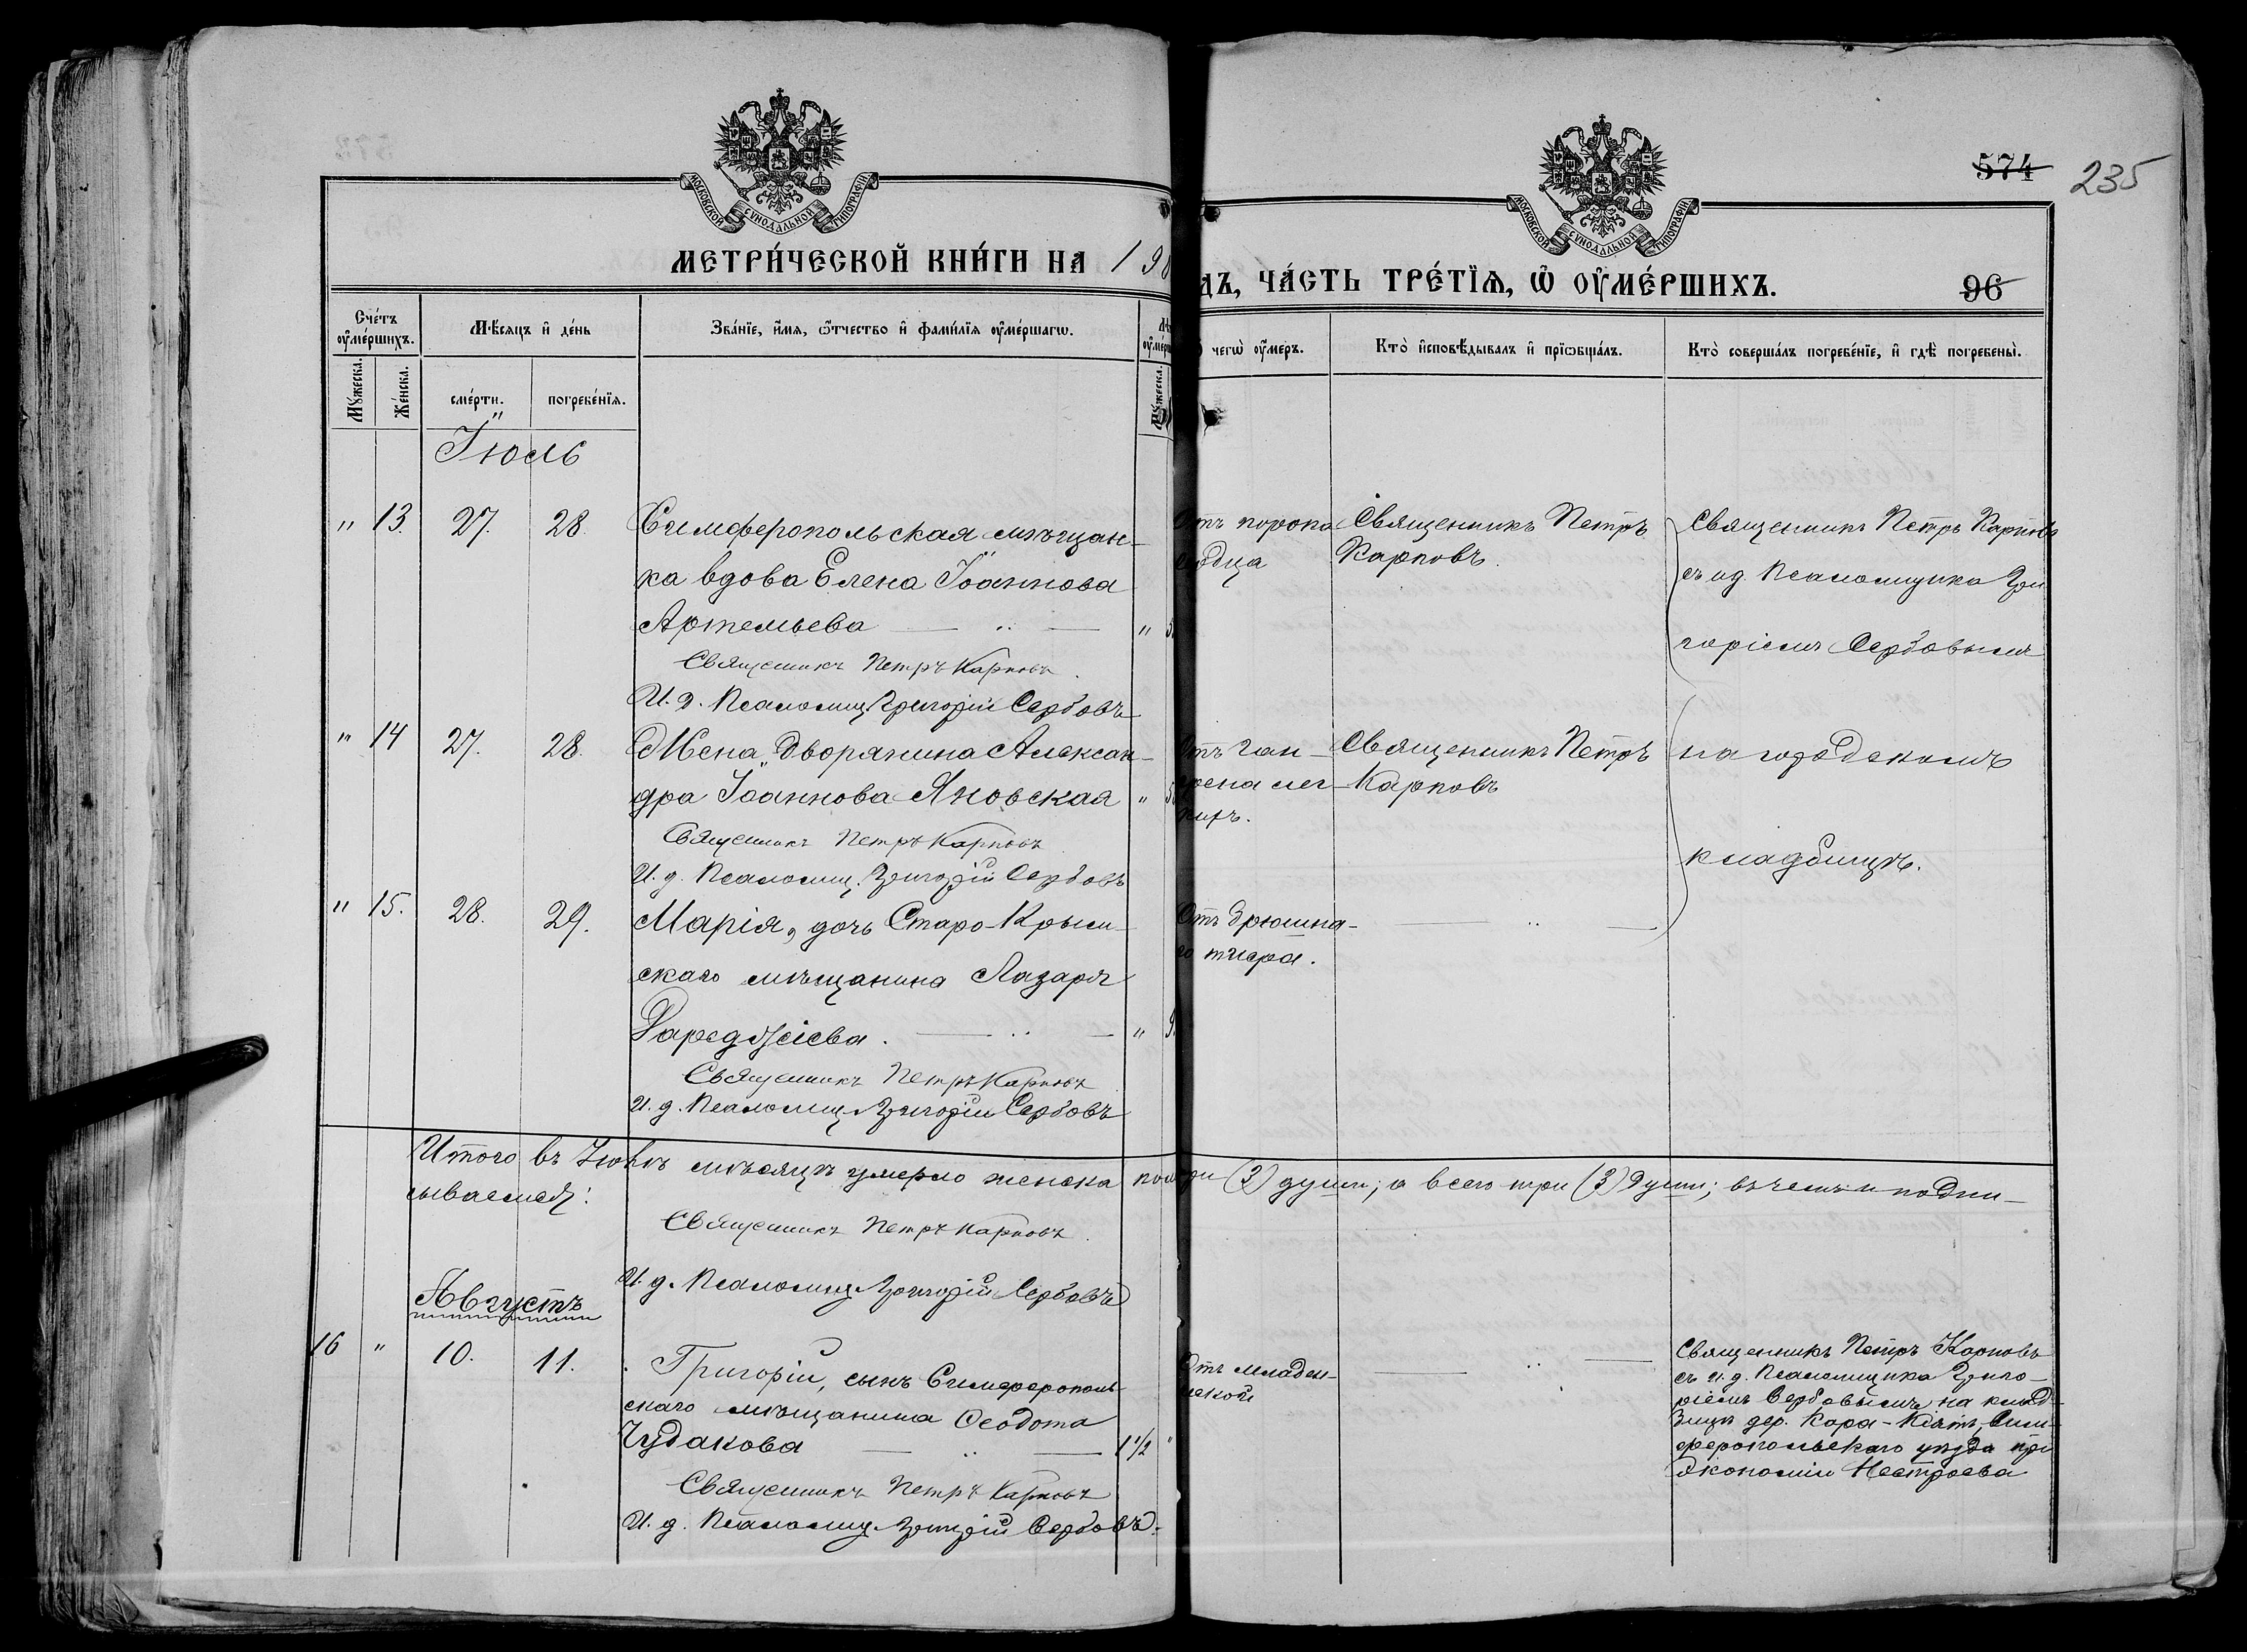 574 235
МОСКОВСКОЙ СѴНОДАЛЬНОЙ ТИПОГРАФІИ
МОСКОВСКОЙ СѴНОДАЛЬНОЙ ТИПОГРАФІИ
МЕТРИ́ЧЕСКОЙ КНИ́ГИ НА 19
ДЪ, ЧА́СТЬ ТРЕ́ТЇѦ, Ѽ ОУ҆МЕ́РШИХЪ.
96
Сче́тъ оу҆ме́ршихъ.
Мꙋ́жеска. Же́нска.
Мѣ́сѧцъ и҆ де́нь
сме́рти. погребе́нїѧ.
Зва́нїе, и҆́мѧ, ѻ҆́тчество и҆ фами́лїѧ оу҆ме́ршагѡ.
Мꙋ́жеска.
чегѡ̀ оу҆́меръ.
Кто̀ и҆сповѣ́дывалъ и҆ прїѡбща́лъ.
Кто̀ соверша́лъ погребе́нїе, и҆ гдѣ̀ погребены̀.
Іюль
" 13. 27. 28. Симферопольская мѣщан-
ка вдова Елена Іоаннова
Артемьева — " — "
Священникъ Петръ Карповъ.
И. д. Псаломщ. Григорій Сербовъ
Отъ порока
сердца
Священникъ Петръ
Карповъ.
Священникъ Петръ Карповъ
съ и д. Псаломщика Гри
горіемъ Сербовымъ
" 14 27. 28. Жена Дворянина Алексан-
дра Іоаннова Яновская "
Священникъ Петръ Карповъ
И. д. Псаломщ. Григорій Сербовъ
Отъ ган-
грена лег-
кихъ.
Священникъ Петръ
Карповъ
на городскомъ
кладбищѣ.
" 15. 28. 29. Марія, дочь Старо-Крым-
скаго мѣщанина Лазаря
— " — " 9.
Священникъ Петръ Карповъ
И. д. Псаломщ. Григорій Сербовъ
Отъ брюшна-
го тифа.
— " —
Итого въ Іюлѣ мѣсяцѣ умерло женска пола три (3) души; а всего три (3) души; въ чемъ и подпи-
сываемся:
Священникъ Петръ Карповъ.
И. д. Псаломщ. Григорій Сербовъ
Августъ
16 " 10. 11. Григорій, сынъ Симферополь-
скаго мѣщанина Ѳеодота
Чудакова — " — 1 1/2 "
Священникъ Петръ Карповъ
И. д. Псаломщ. Григорій Сербовъ.
Отъ младен-
ческой
— " —
Священникъ Петръ Карповъ
съ и. д. Псаломщика Григо-
ріемъ Сербовымъ на клад-
бищѣ дер. Кара-Кіятъ, Сим-
феропольскаго уѣзда при
экономіи Нестроева